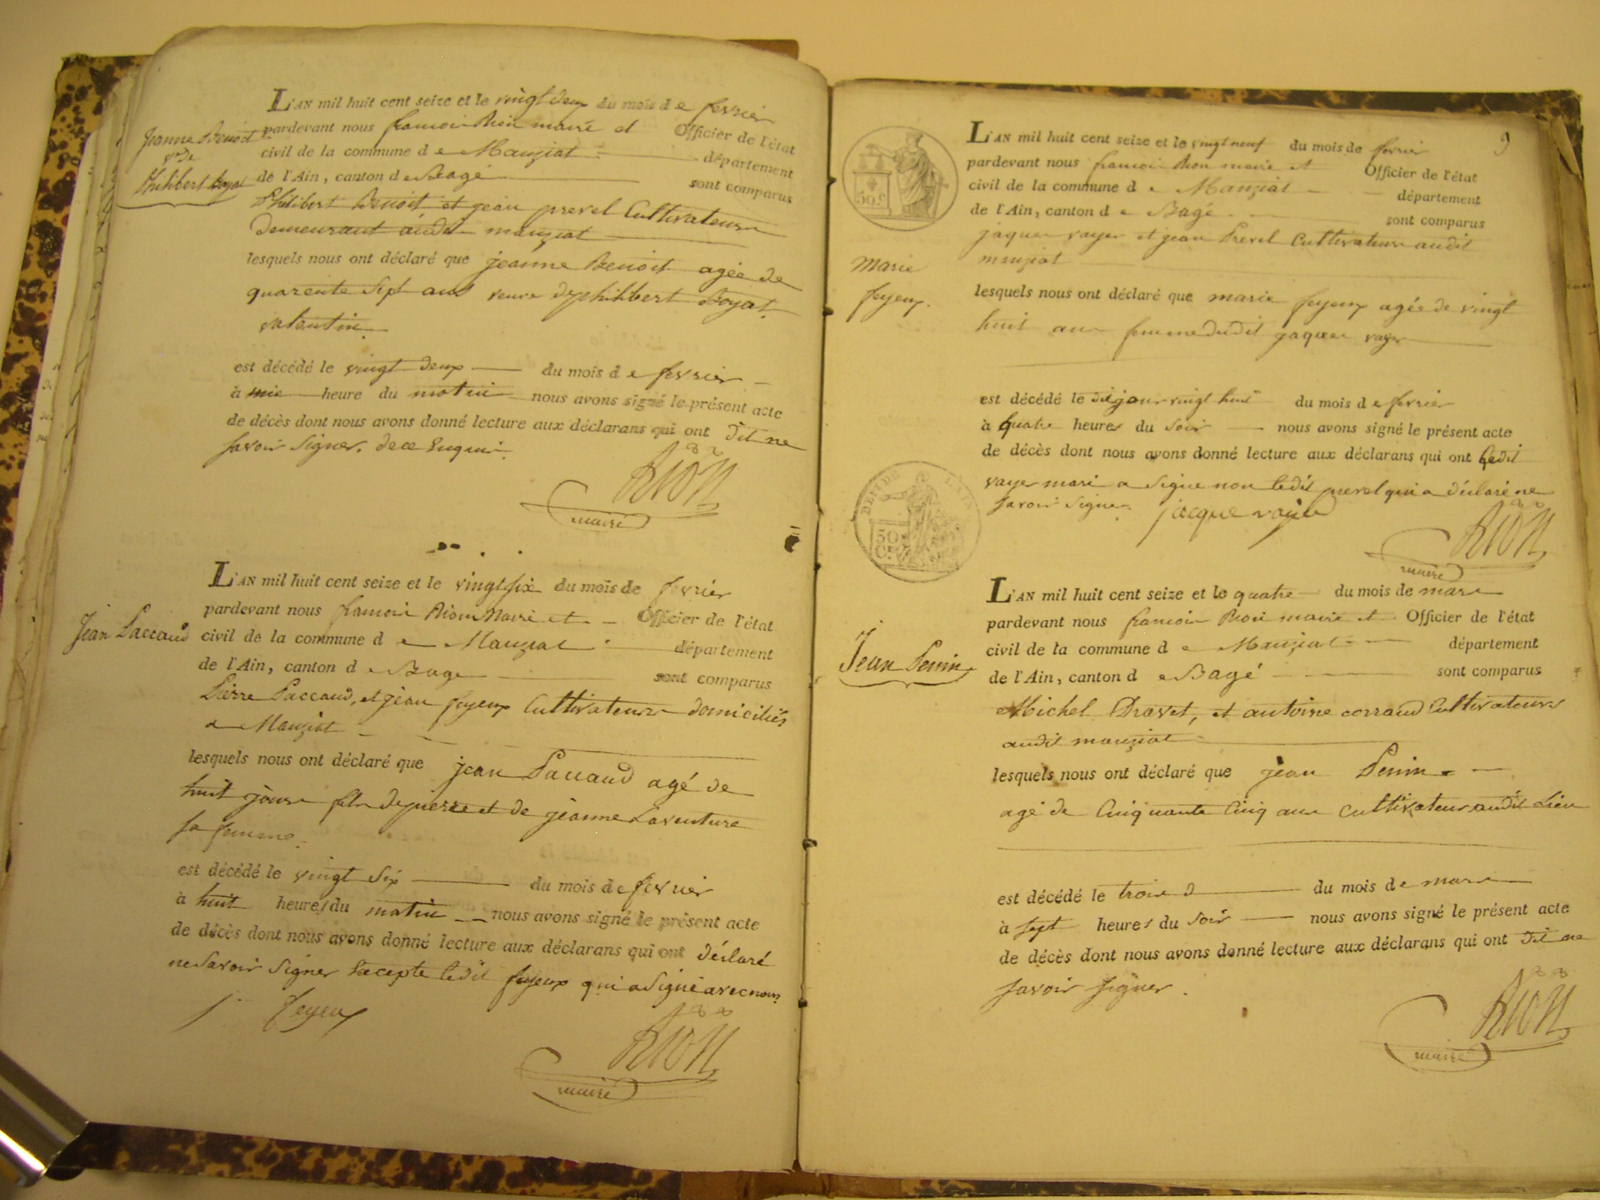 Jeanne Benoit
vve de
Philibert Boyat
L'AN mil huit cent seize et le vingt deux du mois d e fevrier
pardevant nous francois Rion maire et Officier de l'état
civil de la commune d e Manziat département
de l'Ain, canton d e Bage sont comparus
Philibert Benoit et jean prevel Cultivateurs
Demeurant audit manziat
lesquels nous ont déclaré que jeanne Benoit agée de
quarente Sept ans veuve de philibert Boyat
valentin
est décédé le vingt deux du mois d e fevrier
à heure du matin nous avons signé le présent acte
de décès dont nous avons donné lecture aux déclarans qui ont dit ne
savoir signer. de ce Enquis.
Rion
maire
Jean Paccaud
L'AN mil huit cent seize et le vingt six du mois de fevrier
pardevant nous francois Rion Maire et Officier de l'état
civil de la commune d e Manziat département
de l'Ain, canton d e Bage sont comparus
Pierre Paccaud, et jean feyeux Cultivateurs domiciliés
a Manziat
lesquels nous ont déclaré que jean Paccaud agé de
huit jours fils de pierre et de jeanne Laventure
sa femme.
est décédé le vingt six du mois de fevrier
à huit heures du matin nous avons signé le présent acte
de décès dont nous avons donné lecture aux déclarans qui ont déclaré
ne savoir signer Excepte ledit feyeux qui a Signé avec nous
j. feyeux
Rion
maire
9
50 C.
Marie
feyeux.
L'AN mil huit cent seize et le vingt neuf du mois de fevrier
pardevant nous francois Rion maire et Officier de l'état
civil de la commune d e Manziat département
de l'Ain, canton d e Bagé sont comparus
jaques vayer et jean Prevel Cultivateurs audit
manziat
lesquels nous ont déclaré que marie feyeux agée de vingt
huit ans femme dudit jaques vayer
est décédé le dit jour vingt huit du mois d e fevrier
à quatre heures du soir nous avons signé le présent acte
de décès dont nous avons donné lecture aux déclarans qui ont ledit
vayer mari a signe non ledit prevel qui a déclaré ne
savoir signer. jacque vayer
Rion
maire
50
C.
Jean Penin
L'AN mil huit cent seize et le quatre du mois de mars
pardevant nous francois Rion maire et Officier de l'état
civil de la commune d e Manziat département
de l'Ain, canton d e Bagé sont comparus
Michel Dravet, et antoine corraud Cultivateurs
audit manziat
lesquels nous ont déclaré que jean Penin
agé de Cinquante Cinq ans cultivateur audit Lieu
est décédé le trois du mois de mars
à sept heures du soir nous avons signé le présent acte
de décès dont nous avons donné lecture aux déclarans qui ont dit ne
savoir signer.
Rion
maire